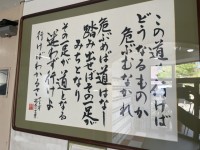 この道を行けば
どうなるものか
危ぶむなかれ
危ぶめば道はなし
踏み出せばその一足が
みちとなり
その一足が道となる
迷わず行けよ
行けばわかるさ